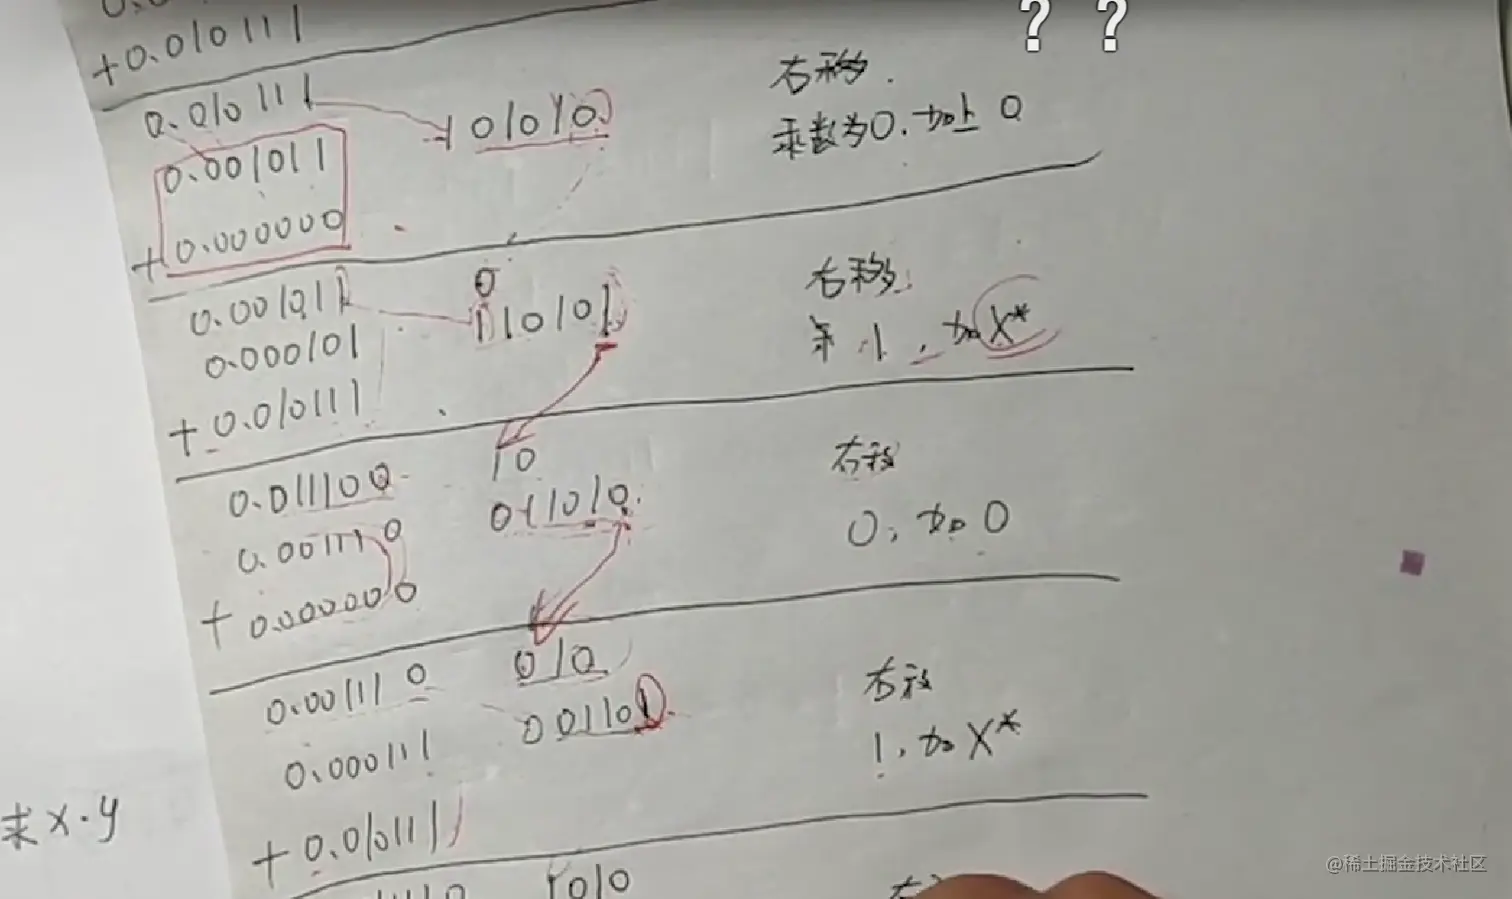 ? ?
+0.010111
0.010111 右移.
101010 乘数为0.加上 0
0.001011
+0.000000
0.001011 0 右移.
110101 乘 1, 加X*
0.000101
+0.010111
0.011100 10 右移
011010 0, 加0
0.001110
+0.000000
0.001110 010 右移
001101 1, 加X*
0.000111
+0.010111
求x.y
1010
@稀土掘金技术社区